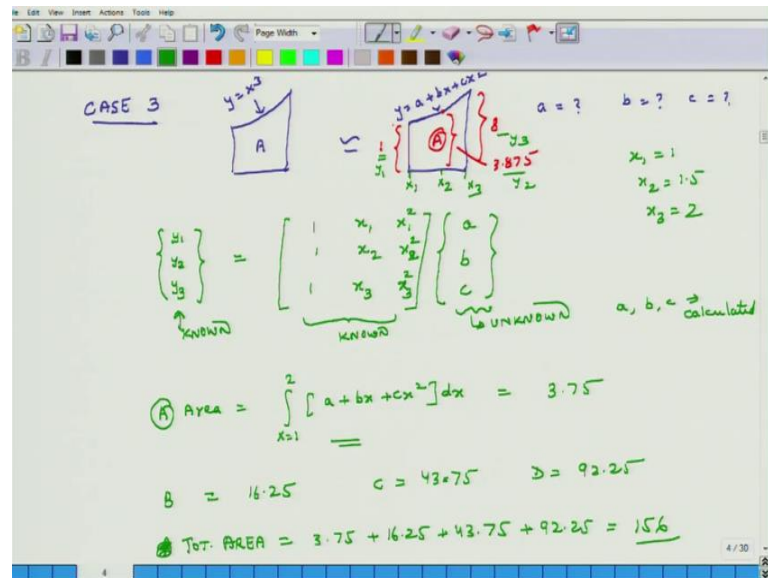 File Edit View Insert Actions Tools Help
Page Width
CASE 3
y = x³
A
≃
y = a + bx + cx²
A
1
y₁
8
y₃
3.875
y₂
x₁ x₂ x₃
a = ? b = ? c = ?
x₁ = 1
x₂ = 1.5
x₃ = 2
{ y₁ y₂ y₃ } = [ 1 x₁ x₁² ] { a
1 x₂ x₂² b
1 x₃ x₃² c }
KNOWN KNOWN UNKNOWN
a, b, c ⇒ calculated
A Area = ∫ x=1 2 [ a + bx + cx² ] dx = 3.75
B = 16.25 C = 43.75 D = 92.25
TOT. AREA = 3.75 + 16.25 + 43.75 + 92.25 = 156
4 / 30
4